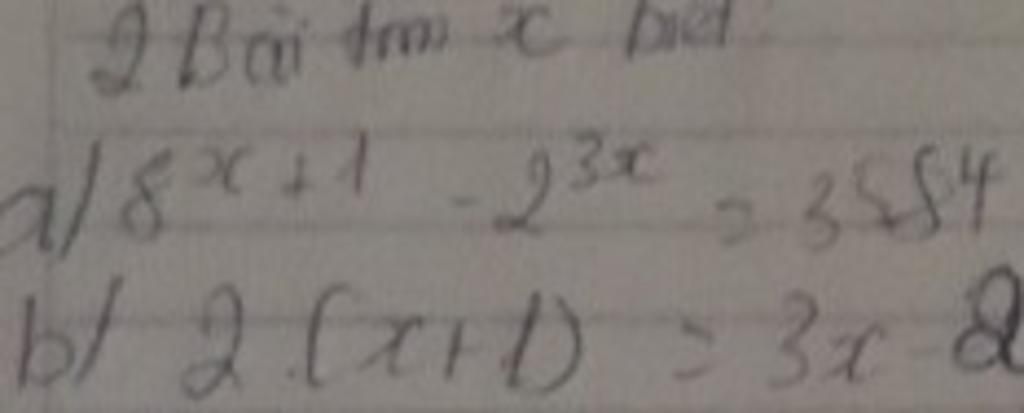 2 Bài tìm x biết
a/ 8^{x+1} - 2^{3x} = 3584
b/ 2.(x+1) = 3x - 2